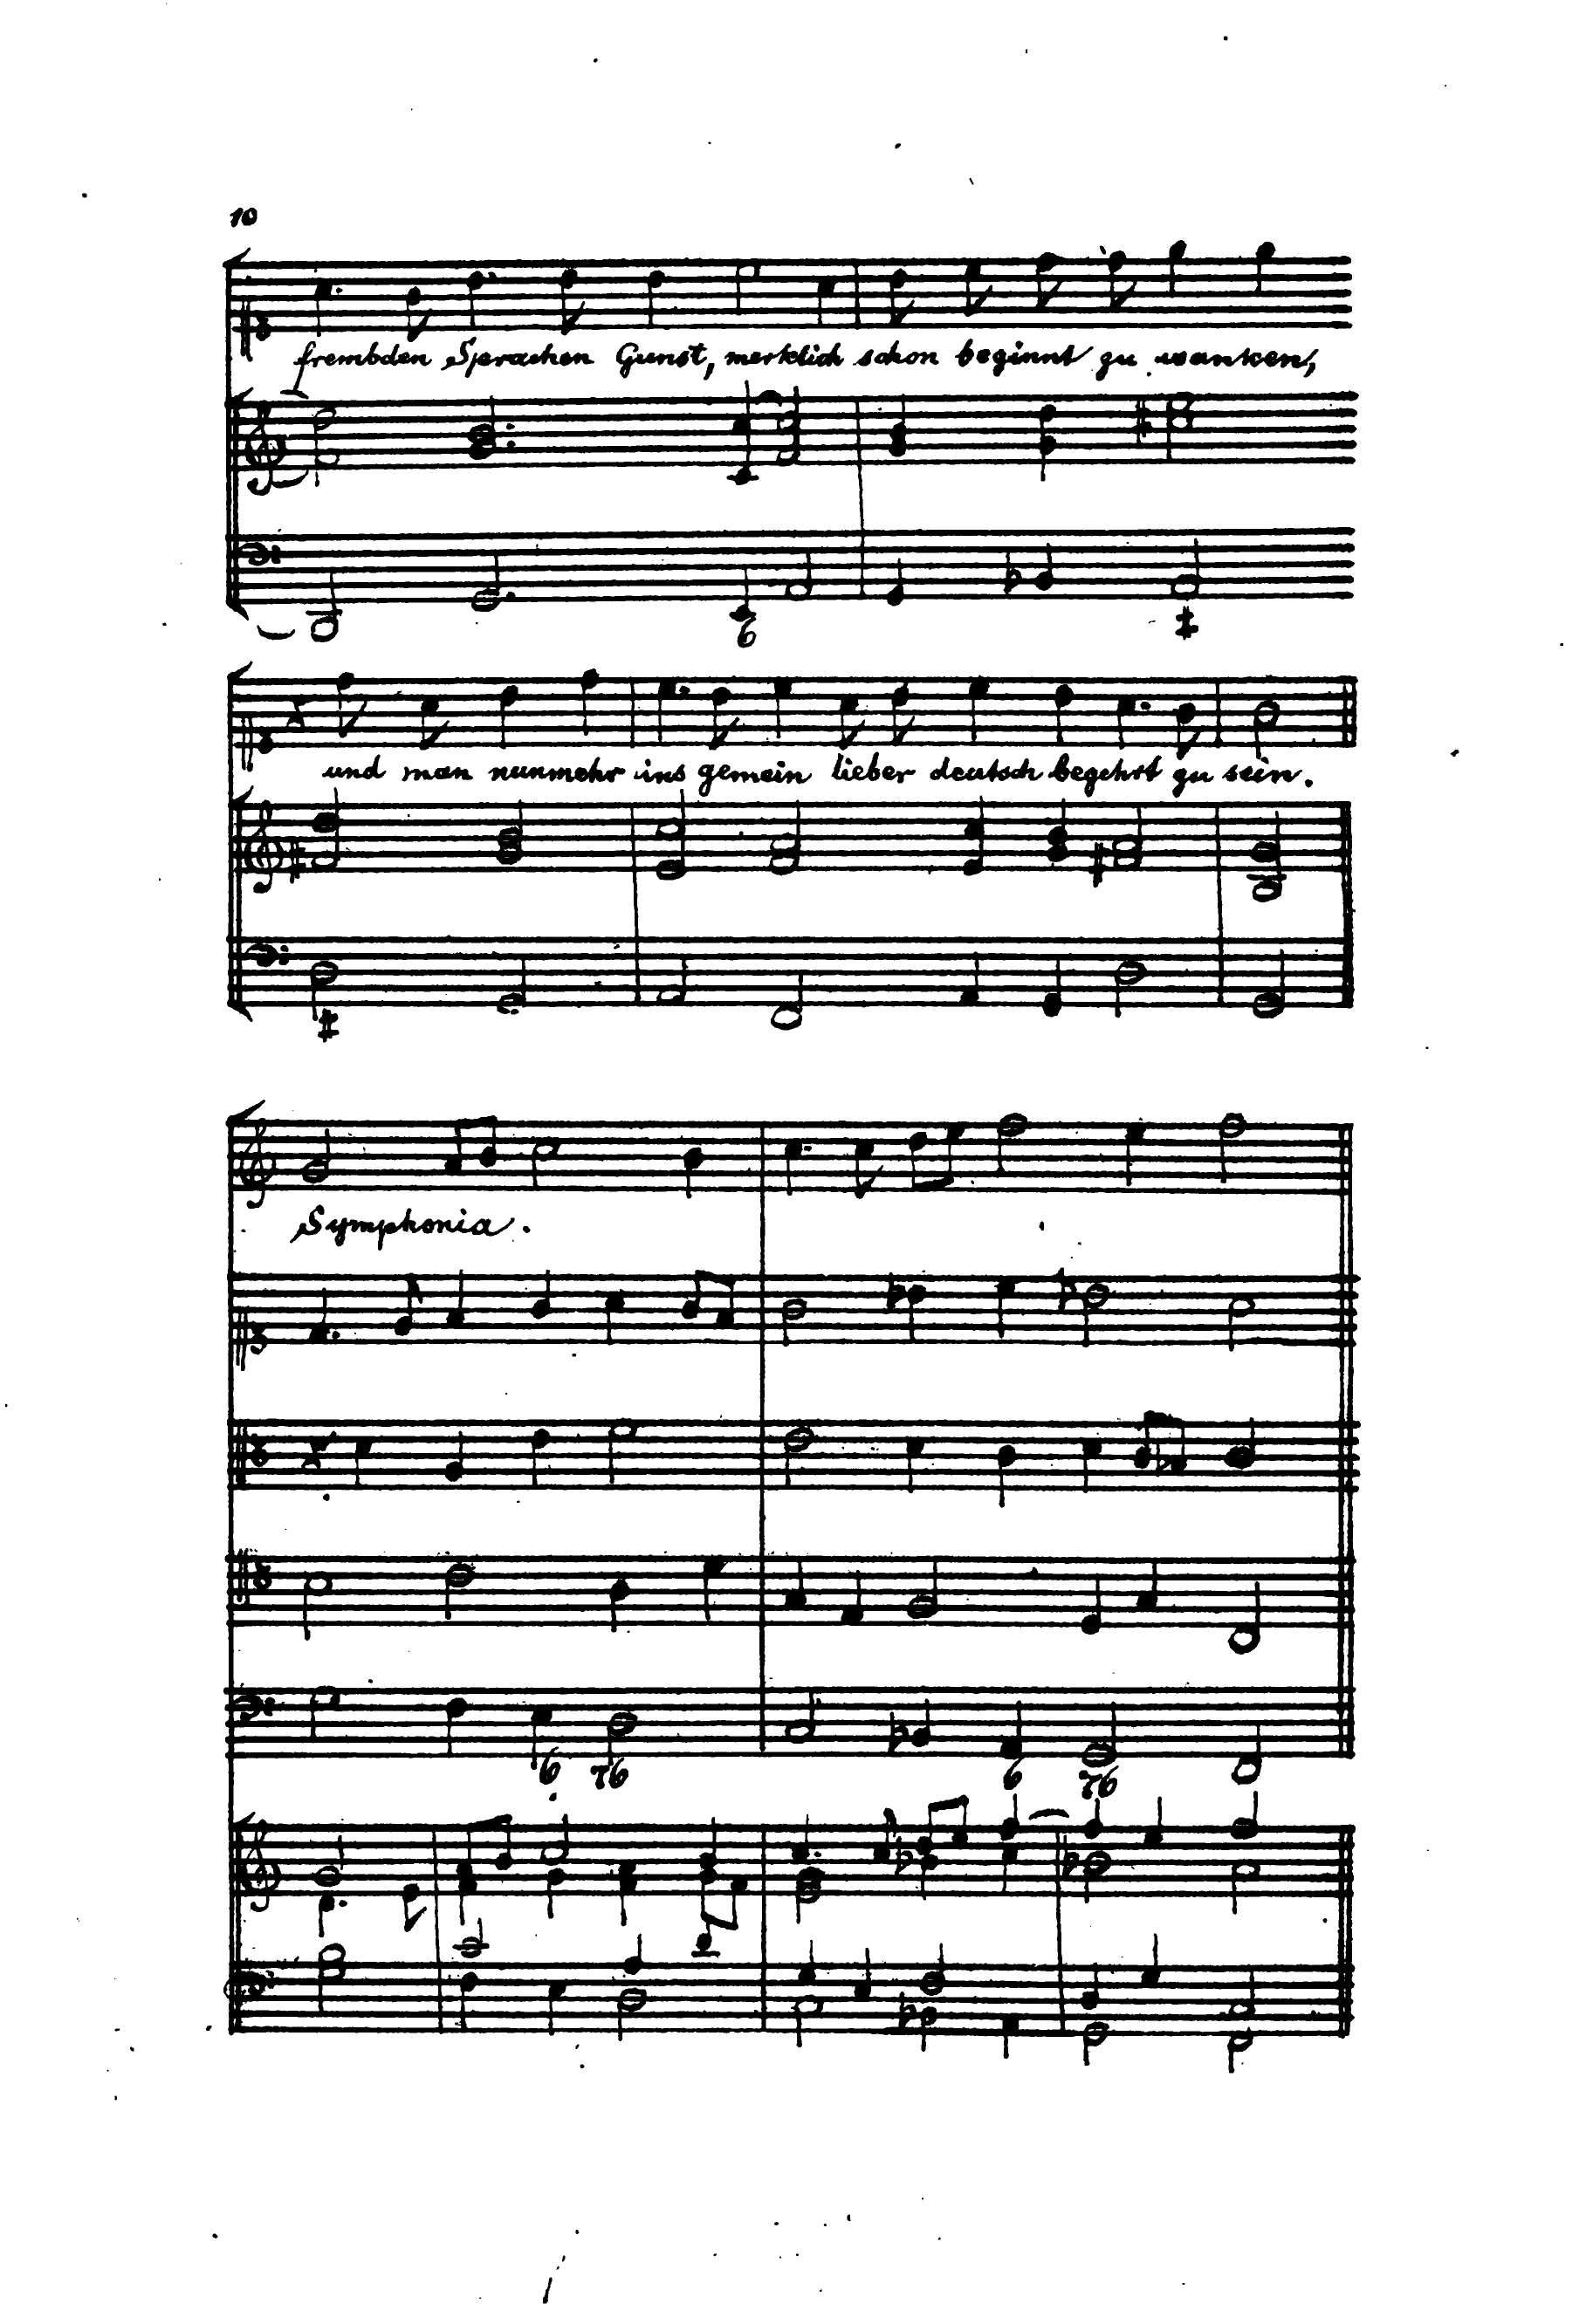 10
frembden Sprachen Gunst, merklich schon beginnt zu wanken,
6
und man nunmehr ins gemein lieber deutsch begehrt zu sein.
Symphonia.
6 76 6 76